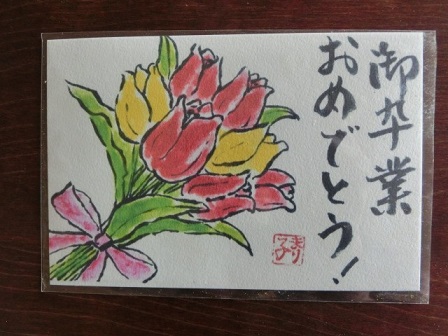 御卒業
おめでとう!
まり子